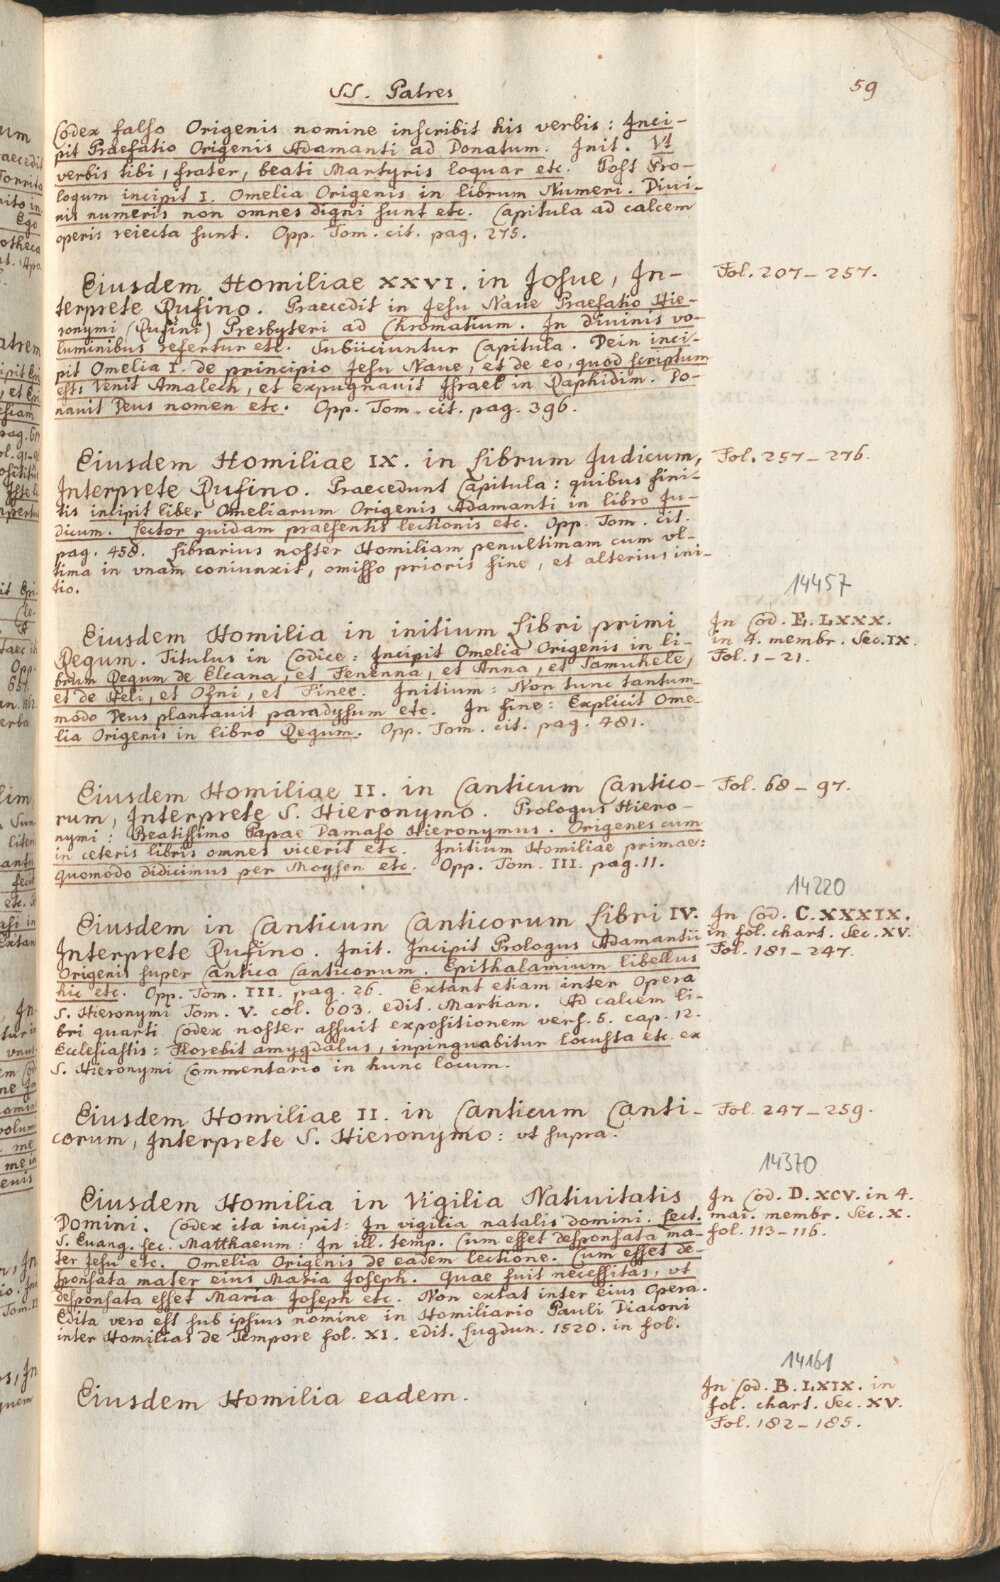 SS. Patres
59
Codex falso Origenis nomine inscribit his verbis: Inci-
pit Praefatio Origenis Adamanti ad Donatum. Init. Vt
verbis tibi, frater, beati Martyris loquar etc. Post Pro-
logum incipit I. Omelia Origenis in librum Numeri. Divi-
nis numeris non omnes digni sunt etc. Capitula ad calcem
operis reiecta sunt. Opp. Tom. cit. pag. 275.
Eiusdem Homiliae XXVI. in Josue, In-
terprete Rufino. Praecedit in Jesu Naue Praefatio Hie-
ronymi (Rufini) Presbyteri ad Chromatium. In diuinis vo-
luminibus refertur etc. Subiiciuntur Capitula. Dein inci-
pit Omelia I. de principio Jesu Naue, et de eo, quod scriptum
est: Venit Amalech, et expugnauit Israel in Raphidim. Do-
nauit Deus nomen etc. Opp. Tom. cit. pag. 396.
Fol. 207–257.
Eiusdem Homiliae IX. in Librum Judicum,
Interprete Rufino. Praecedunt Capitula: quibus fini-
tis incipit liber Omeliarum Origenis Adamanti in libro Ju-
dicum. Lector quidam praesentis lectionis etc. Opp. Tom. cit.
pag. 458. Librarius noster Homiliam penultimam cum vl-
tima in vnam coniunxit, omisso prioris fine, et alterius ini-
tio.
Fol. 257–276.
14457
Eiusdem Homilia in initium Libri primi
Regum. Titulus in Codice: Incipit Omelia Origenis in li-
brum Regum de Elcana, et Fenenna, et Anna, et Samuhele,
et de Heli, et Ofni, et Finee. Initium: Non tunc tantum-
modo Deus plantauit paradysum etc. In fine: Explicit Ome-
lia Origenis in libro Regum. Opp. Tom. cit. pag. 481.
In Cod. E. LXXX.
in 4. membr. Sec. IX.
Fol. 1–21.
Eiusdem Homiliae II. in Canticum Cantico-
rum, Interprete S. Hieronymo. Prologus Hiero-
nymi: Beatissimo Papae Damaso Hieronymus. Origenes cum
in ceteris libris omnes vicerit etc. Initium Homiliae primae:
Quomodo didicimus per Moysen etc. Opp. Tom. III. pag. 11.
Fol. 68–97.
14220
Eiusdem in Canticum Canticorum Libri IV.
Interprete Rufino. Init. Incipit Prologus Adamantii
Origenis super Cantica Canticorum. Epithalamium libellus
hic etc. Opp. Tom. III. pag. 26. Extant etiam inter Opera
S. Hieronymi Tom. V. col. 603. edit. Martian. Ad calcem li-
bri quarti Codex noster assuit expositionem vers. 5. cap. 12.
Ecclesiastis: Florebit amygdalus, inpinguabitur locusta etc. ex
S. Hieronymi Commentario in hunc locum.
In Cod. C. XXXIX.
in fol. chart. Sec. XV.
Fol. 181–247.
Eiusdem Homiliae II. in Canticum Canti-
corum, Interprete S. Hieronymo: vt supra.
Fol. 247–259.
14370
Eiusdem Homilia in Vigilia Natiuitatis
Domini. Codex ita incipit: In vigilia natalis domini. Lect.
S. Euang. sec. Matthaeum: In ill. temp. Cum esset desponsata ma-
ter Jesu etc. Omelia Origenis de eadem lectione. Cum esset de-
sponsata mater eius Maria Joseph. Quae fuit necessitas, vt
desponsata esset Maria Joseph etc. Non extat inter eius Opera.
Edita vero est sub ipsius nomine in Homiliario Pauli Diaconi
inter Homilias de Tempore fol. XI. edit. Lugdun. 1520. in fol.
In Cod. D. XCV. in 4.
mai. membr. Sec. X.
fol. 113–116.
14161
Eiusdem Homilia eadem.
In Cod. B. LXIX. in
fol. chart. Sec. XV.
Fol. 182–185.